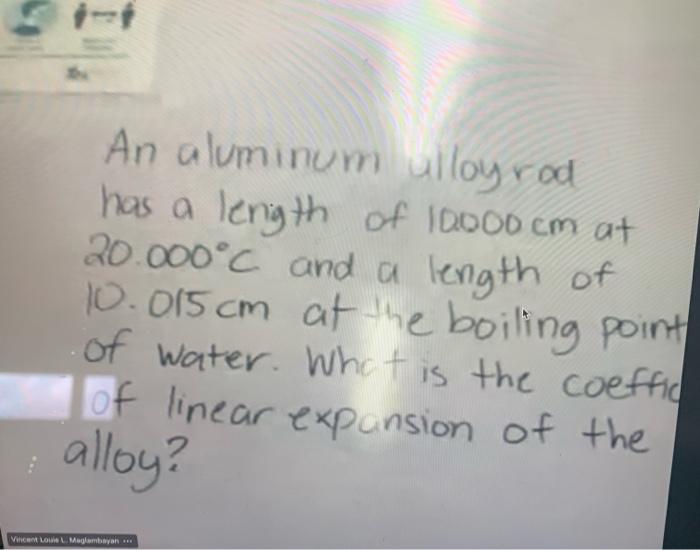 An aluminum alloy rod
has a length of 10.000 cm at
20.000°C and a length of
10.015 cm at the boiling point
of water. What is the coeffic
of linear expansion of the
alloy?
Vincent Louie L. Maglambayan ...